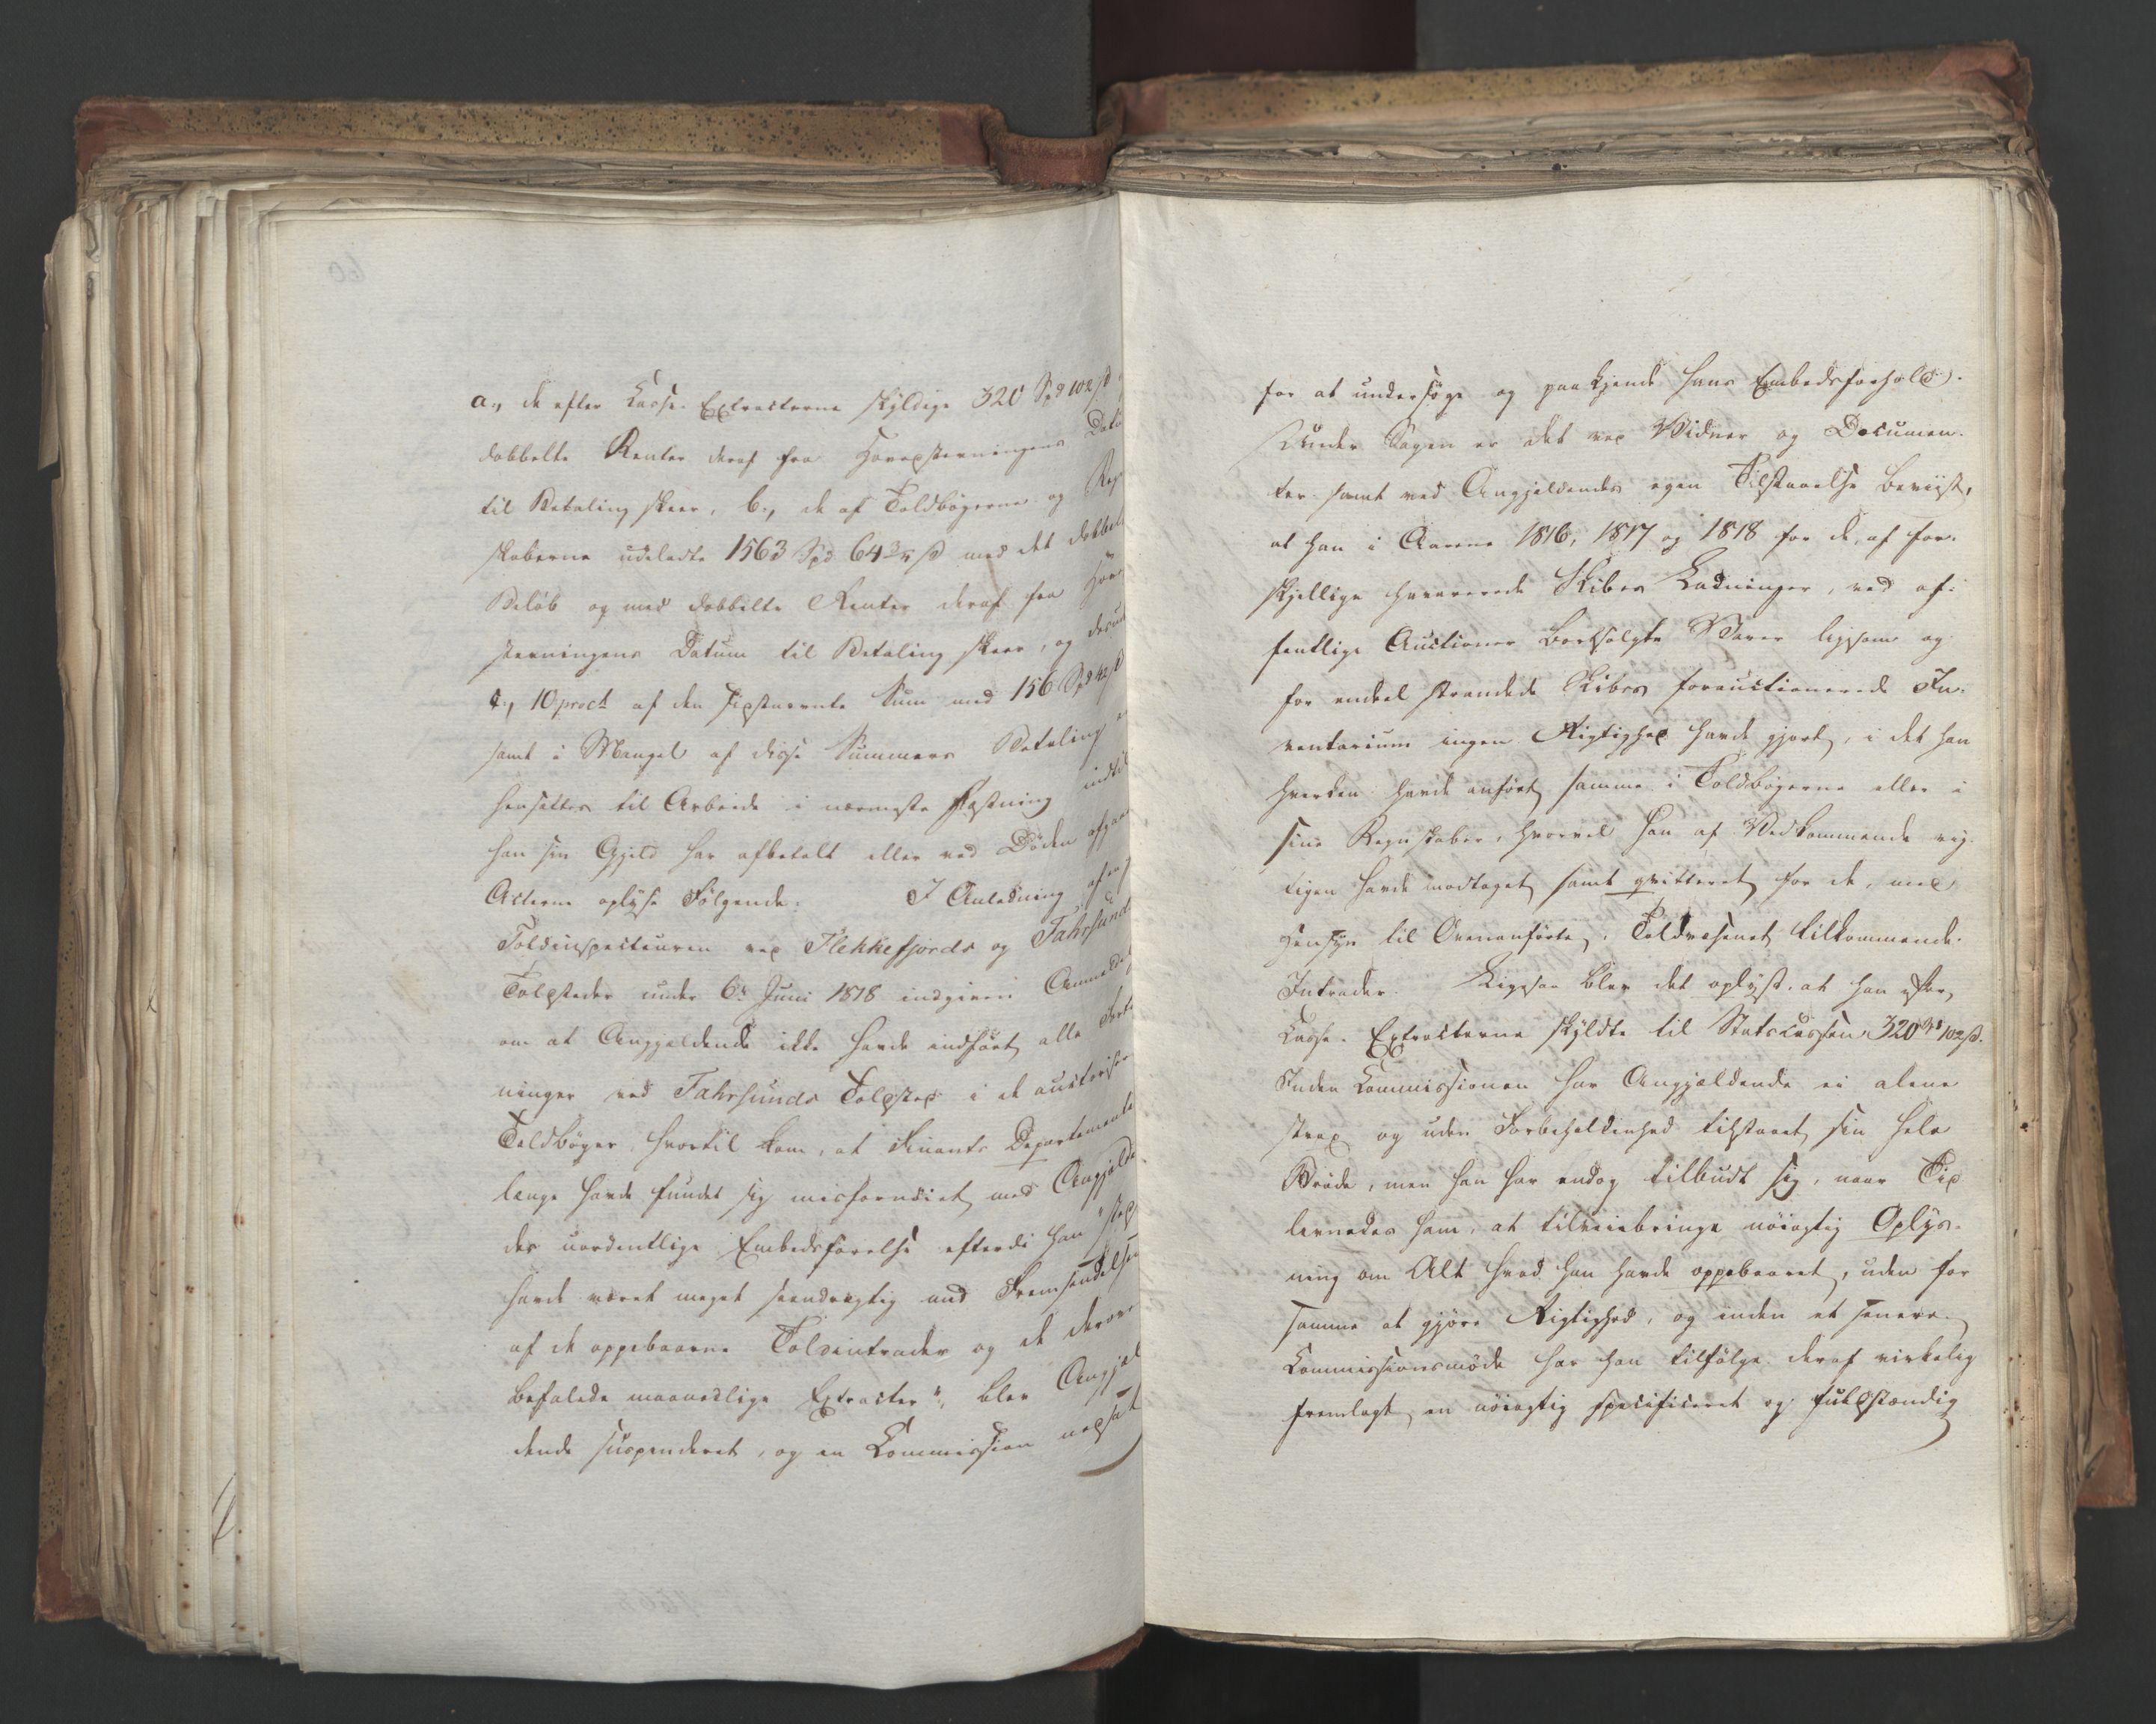 a., de efter Casse-Extracterne skyldige 320 Spd 102 ß
dobbelte Renter deraf fra Hovedstævningens Dato
til Betaling skeer, b., de af Toldbøgerne og Reg
skaberne udeladte 1563 Spd 64 3/5 ß med det dobbel
Beløb og med dobbelte Renter deraf fra Hov
stævningens Datum til Betaling skeer, og desud
c., 10 proct af den sidstnævnte Sum med 156 Spd 42 ß
samt i Mangel af disse Summers Betaling
hensættes til Arbeide i nærmeste Fæstning indtil
han sin Gjeld har afbetalt eller ved Døden afgaaer
Acterne oplyse Følgende: I Anledning af en
Toldinspecteuren ved Flekkefjords og Fahrsunds
Toldsteder under 6te Juni 1818 indgiven Anmeldel
om at Angjældende ikke havde indført alle Fort
ninger ved Fahrsunds Toldsted i de auctorise
Toldbøger, hvortil kom, at Finants Departementet
længe havde fundet sig misfornøiet med Angjælden
des uordentlige Embedsførelse efterdi han "sted
havde været meget seendrægtig med Fremsendelsen
af de oppebaarne Toldintrader og de derover
befalede maanedlige Extracter", blev Angjæl
dende suspenderet, og en Commission nedsat
for at undersøge og paakjende hans Embedsforhold.
Under Sagen er det ved Vidner og Documen-
ter samt ved Angjældendes egen Tilstaaelse beviist,
at han i Aarene 1816, 1817 og 1818 for de, af for-
skjellige havarerede Skibes Ladninger, ved of-
fentlige Auctioner bortsolgte Varer ligesom og
for endeel strandede Skibes forauctionerede In-
ventarium ingen Rigtighed havde gjort, i det han
hverken havde anført samme i Toldbøgerne eller i
sine Regnskaber, hvorvel han af Vedkommende rig-
tigen havde modtaget samt qvitteret for de, med
Hensyn til Ovenanførte, Toldvæsenet tilkommende
Intrader. Ligesaa blev det oplyst, at han efter
Casse-Extracterne skyldte til Statscassen 320 Spd 102 ß.
Inden Commissionen har Angjældende ei alene
strax og uden Forbeholdenhed tilstaaet sin hele
Brøde, men han har endog tilbudt sig, naar Tid
levnedes ham, at tilveiebringe nøiagtig Oplys-
ning om Alt hvad han havde oppebaaret, uden for
samme at gjøre Rigtighed, og inden et senere
Commissionsmøde har han tilfølge deraf virkelig
fremlagt en nøiagtig specificeret og fuldstændig